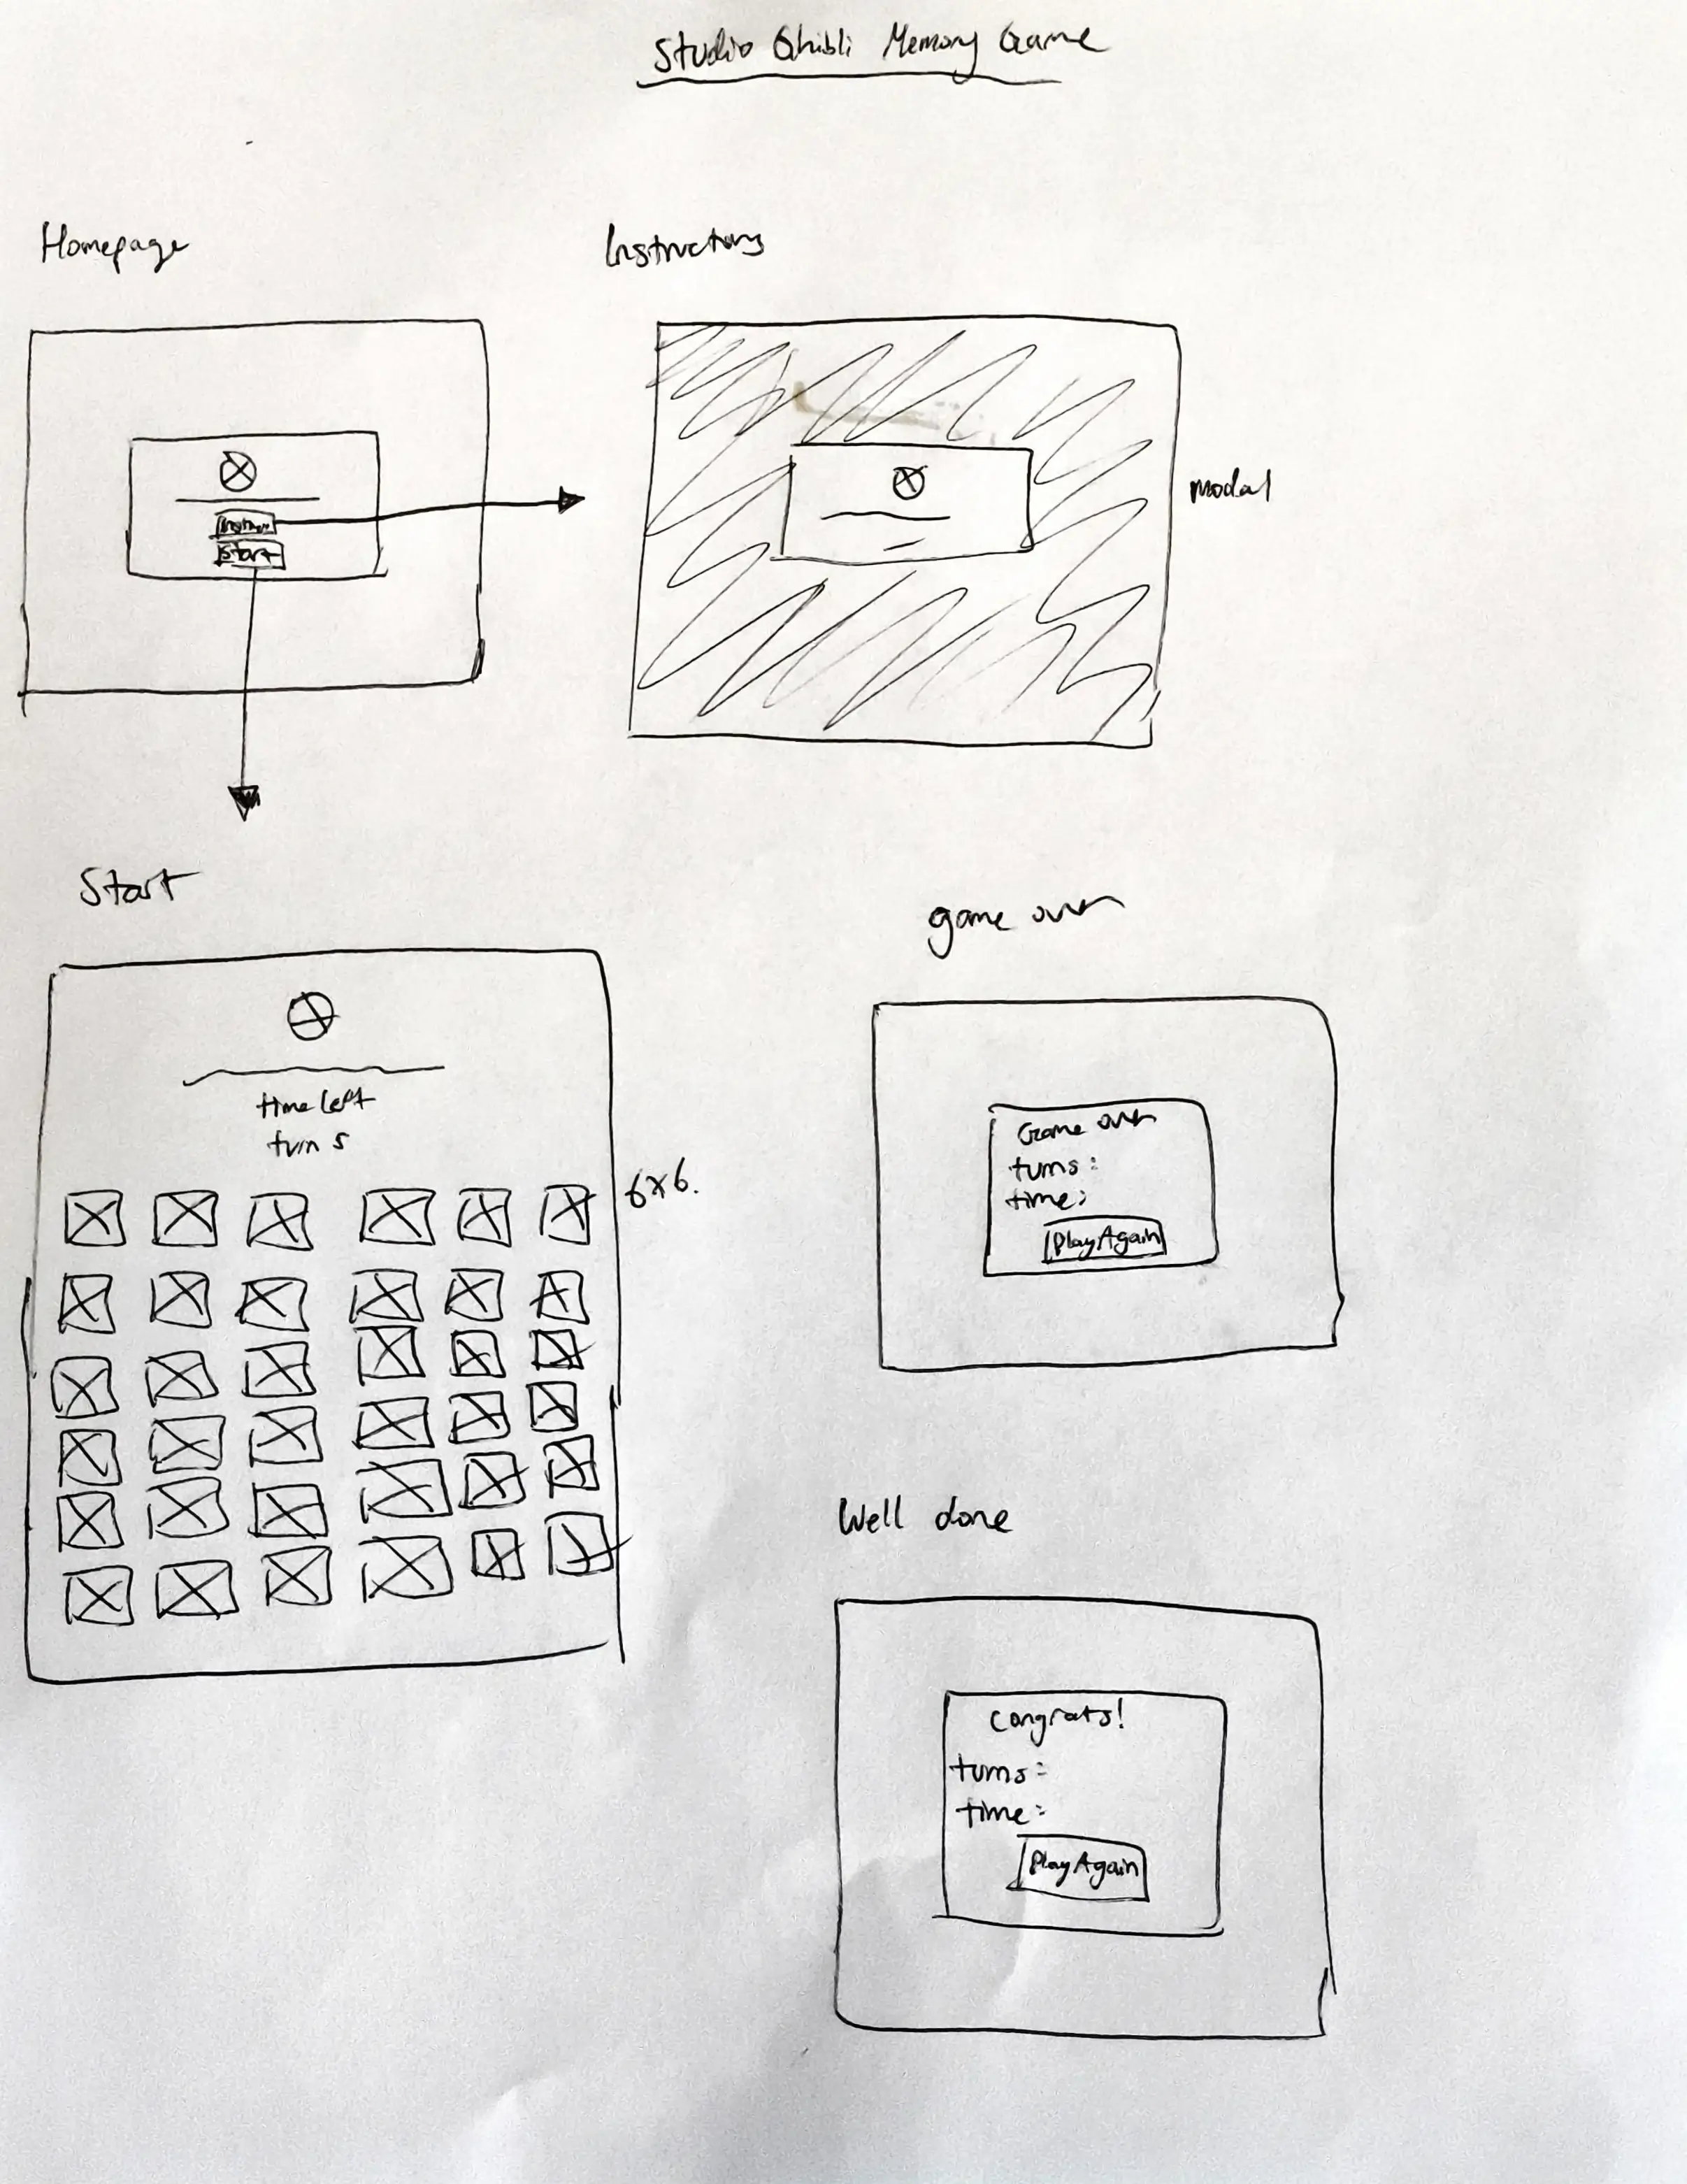 Studio Ghibli Memory Game
Homepage
Instructions
Start
modal
Start
game over
time left
turns
6x6.
Game over
turns:
time:
Play Again
Well done
Congrats!
turns:
time:
Play Again